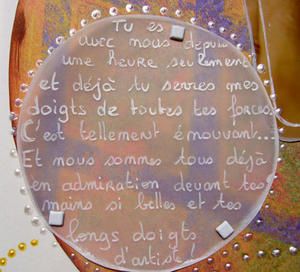 Tu es
avec nous depuis
une heure seulement
et déjà tu serres mes
doigts de toutes tes forces.
C'est tellement émouvant...
Et nous sommes tous déjà
en admiration devant tes
mains si belles et tes
longs doigts
d'artiste!